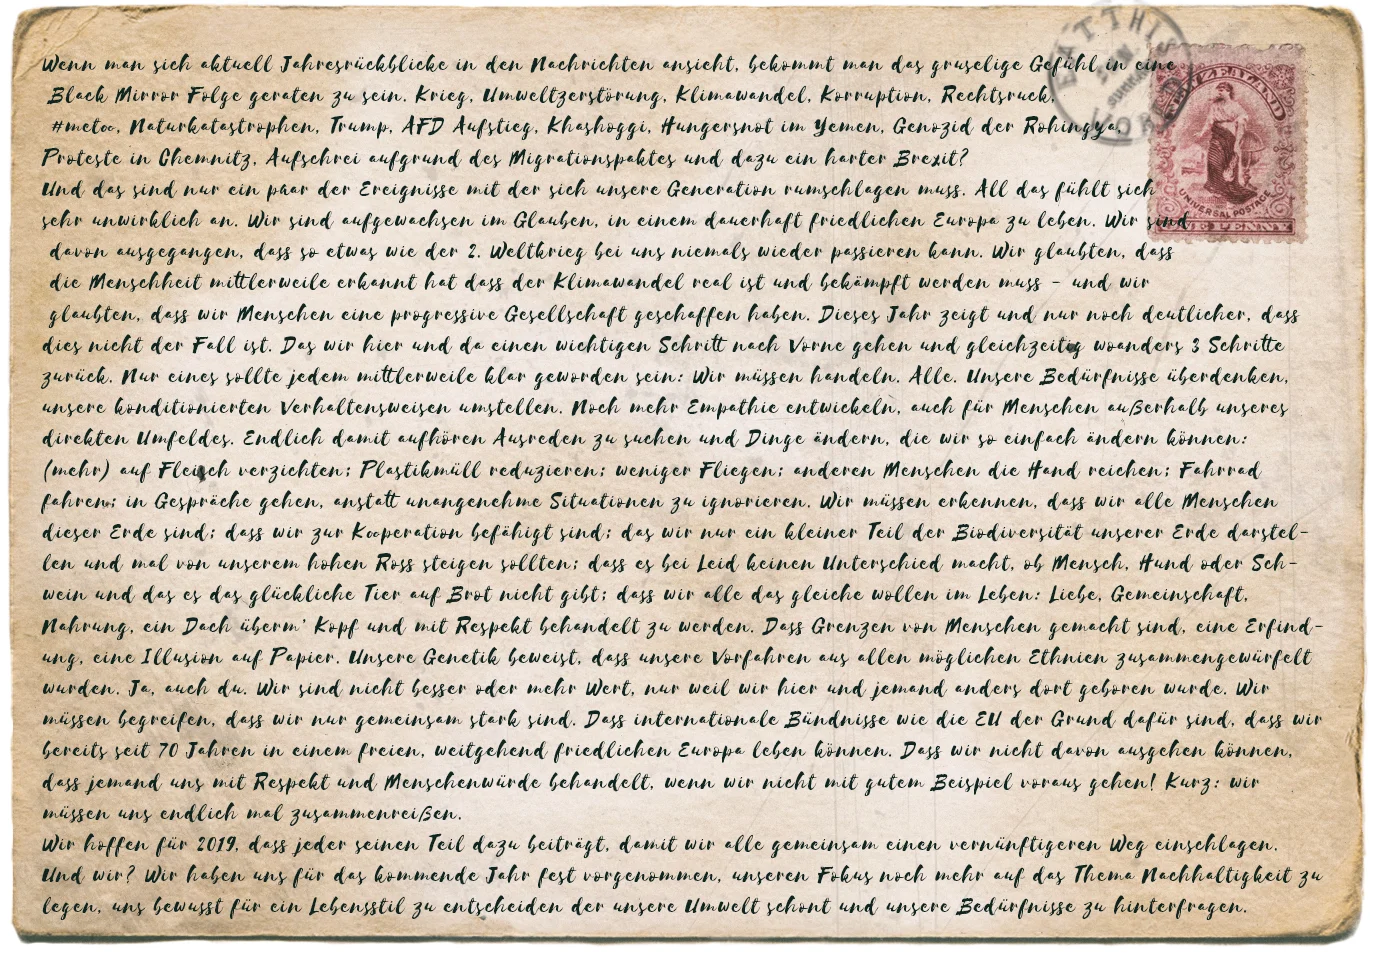 Wenn man sich aktuell Jahresrückblicke in den Nachrichten ansieht, bekommt man das gruselige Gefühl in eine
Black Mirror Folge geraten zu sein. Krieg, Umweltzerstörung, Klimawandel, Korruption, Rechtsruck,
#metoo, Naturkatastrophen, Trump, AFD Aufstieg, Khashoggi, Hungersnot im Yemen, Genozid der Rohingya,
Proteste in Chemnitz, Aufschrei aufgrund des Migrationspaktes und dazu ein harter Brexit?
Und das sind nur ein paar der Ereignisse mit der sich unsere Generation rumschlagen muss. All das fühlt sich
sehr unwirklich an. Wir sind aufgewachsen im Glauben, in einem dauerhaft friedlichen Europa zu leben. Wir sind
davon ausgegangen, dass so etwas wie der 2. Weltkrieg bei uns niemals wieder passieren kann. Wir glaubten, dass
die Menschheit mittlerweile erkannt hat dass der Klimawandel real ist und bekämpft werden muss - und wir
glaubten, dass wir Menschen eine progressive Gesellschaft geschaffen haben. Dieses Jahr zeigt und nur noch deutlicher, dass
dies nicht der Fall ist. Das wir hier und da einen wichtigen Schritt nach Vorne gehen und gleichzeitig woanders 3 Schritte
zurück. Nur eines sollte jedem mittlerweile klar geworden sein: Wir müssen handeln. Alle. Unsere Bedürfnisse überdenken,
unsere konditionierten Verhaltensweisen umstellen. Noch mehr Empathie entwickeln, auch für Menschen außerhalb unseres
direkten Umfeldes. Endlich damit aufhören Ausreden zu suchen und Dinge ändern, die wir so einfach ändern können:
(mehr) auf Fleisch verzichten; Plastikmüll reduzieren; weniger Fliegen; anderen Menschen die Hand reichen; Fahrrad
fahren; in Gespräche gehen, anstatt unangenehme Situationen zu ignorieren. Wir müssen erkennen, dass wir alle Menschen
dieser Erde sind; dass wir zur Kooperation befähigt sind; das wir nur ein kleiner Teil der Biodiversität unserer Erde darstel-
len und mal von unserem hohen Ross steigen sollten; dass es bei Leid keinen Unterschied macht, ob Mensch, Hund oder Sch-
wein und das es das glückliche Tier auf Brot nicht gibt; dass wir alle das gleiche wollen im Leben: Liebe, Gemeinschaft,
Nahrung, ein Dach überm' Kopf und mit Respekt behandelt zu werden. Dass Grenzen von Menschen gemacht sind, eine Erfind-
ung, eine Illusion auf Papier. Unsere Genetik beweist, dass unsere Vorfahren aus allen möglichen Ethnien zusammengewürfelt
wurden. Ja, auch du. Wir sind nicht besser oder mehr Wert, nur weil wir hier und jemand anders dort geboren wurde. Wir
müssen begreifen, dass wir nur gemeinsam stark sind. Dass internationale Bündnisse wie die EU der Grund dafür sind, dass wir
bereits seit 70 Jahren in einem freien, weitgehend friedlichen Europa leben können. Dass wir nicht davon ausgehen können,
dass jemand uns mit Respekt und Menschenwürde behandelt, wenn wir nicht mit gutem Beispiel voraus gehen! Kurz: wir
müssen uns endlich mal zusammenreißen.
Wir hoffen für 2019, dass jeder seinen Teil dazu beiträgt, damit wir alle gemeinsam einen vernünftigeren Weg einschlagen.
Und wir? Wir haben uns für das kommende Jahr fest vorgenommen, unseren Fokus noch mehr auf das Thema Nachhaltigkeit zu
legen, uns bewusst für ein Lebensstil zu entscheiden der unsere Umwelt schont und unsere Bedürfnisse zu hinterfragen.
EAT THIS
ZEALAND
UNIVERSAL POSTAGE
PENNY